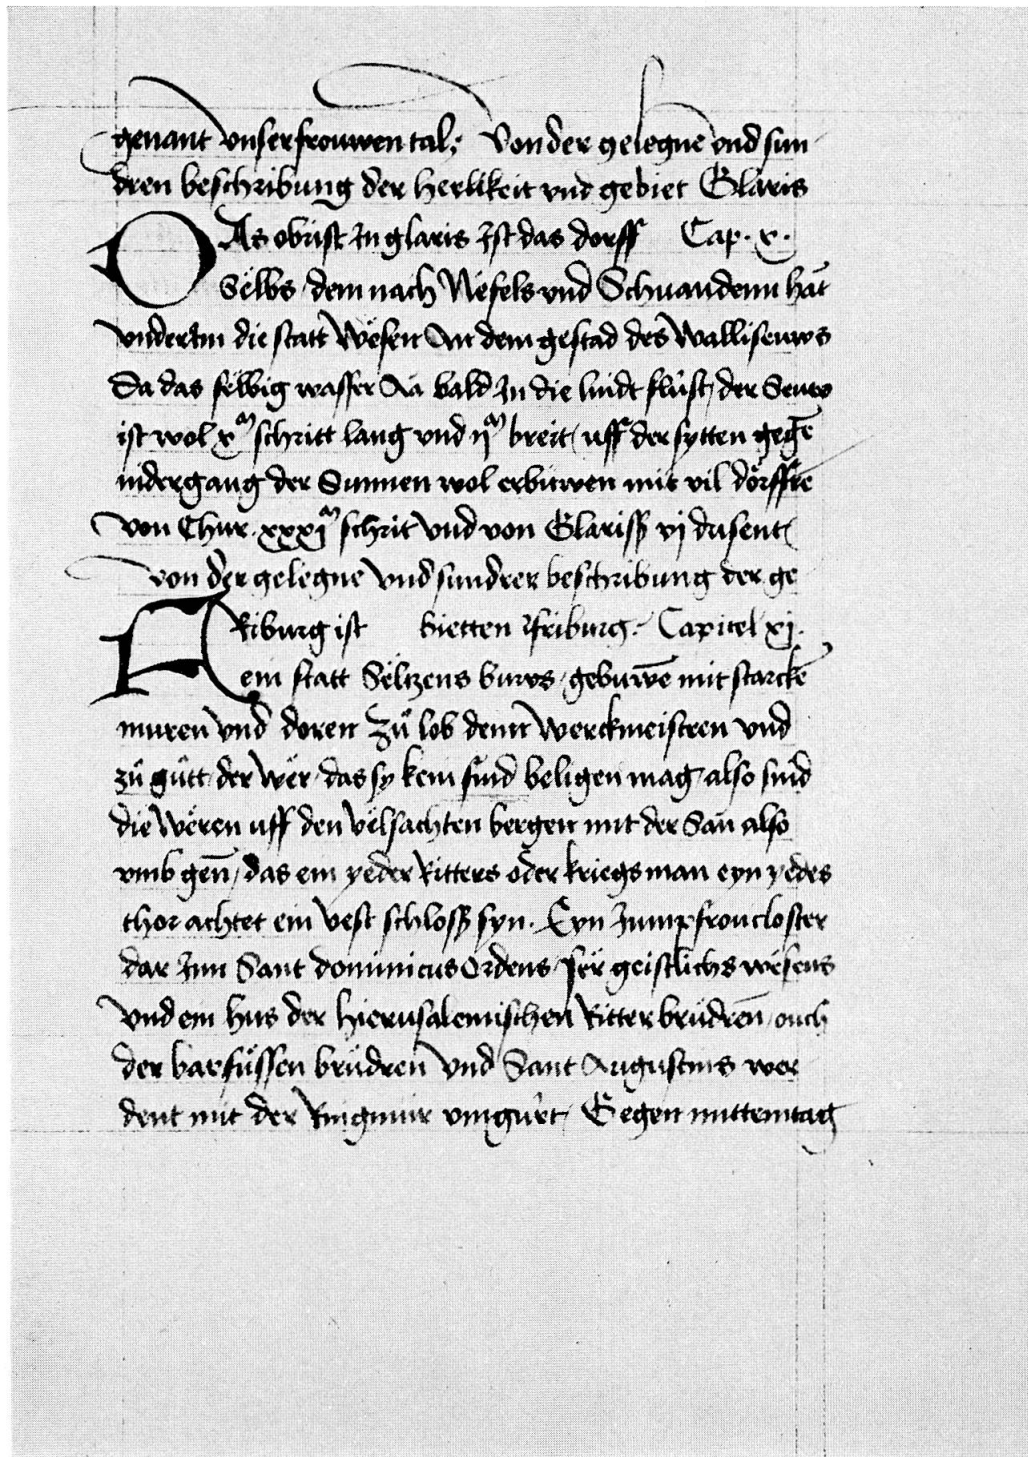 genant Vnser frouwen tal; Von der gelegnē vnd sun
dren beschribung der herlikeit vnd gebiet Glaris
DAs obrist Jn glaris Jst das dorff Cap. x.
Sëlbs, dem nach Nëfels vnd Schwandenn hāt
Vnder Jm die statt Wësen An dem gestad des Wallisews
Da das sëlbig wasser Aa bald Jn die lindt flüst, der Seuw
ist wol xᵐ schritt lang vnd ijᵐ breit, uff der sytten gegē
nidergang der Sunnen wol erbuwen mit vil dörffrē
Von Chur. xxxjᵐ schrit Vnd von Glariß vj dusent
Von der gelegne Vnd sundrer beschribung der ge
FRiburg ist bietten friburg. Capitel xj.
ein statt Sëltzens buws, gebuwē mit starckē
muren Vnd doren Zů lob denn Werckmeistren Vnd
zů gůtt der Wër, das sy kein find beligen mag, also sind
die Wëren uff den Vëlsachten bergen mit der San also
vmb gen̄, das ein yeder Ritters oder kriegsman eyn yedes
thor achtet ein Vest schloß syn. Eyn Junpfroucloster
dar Jnn Sant dominicus Ordens, sër geistlichs wësens
Vnd ein hus der hierusalemischen Ritter brüdren̄, ouch
der barfüssen brüdren Vnd Sant Augustins wer
dent mit der Ringmur vmgürt, Gegen mittemtag